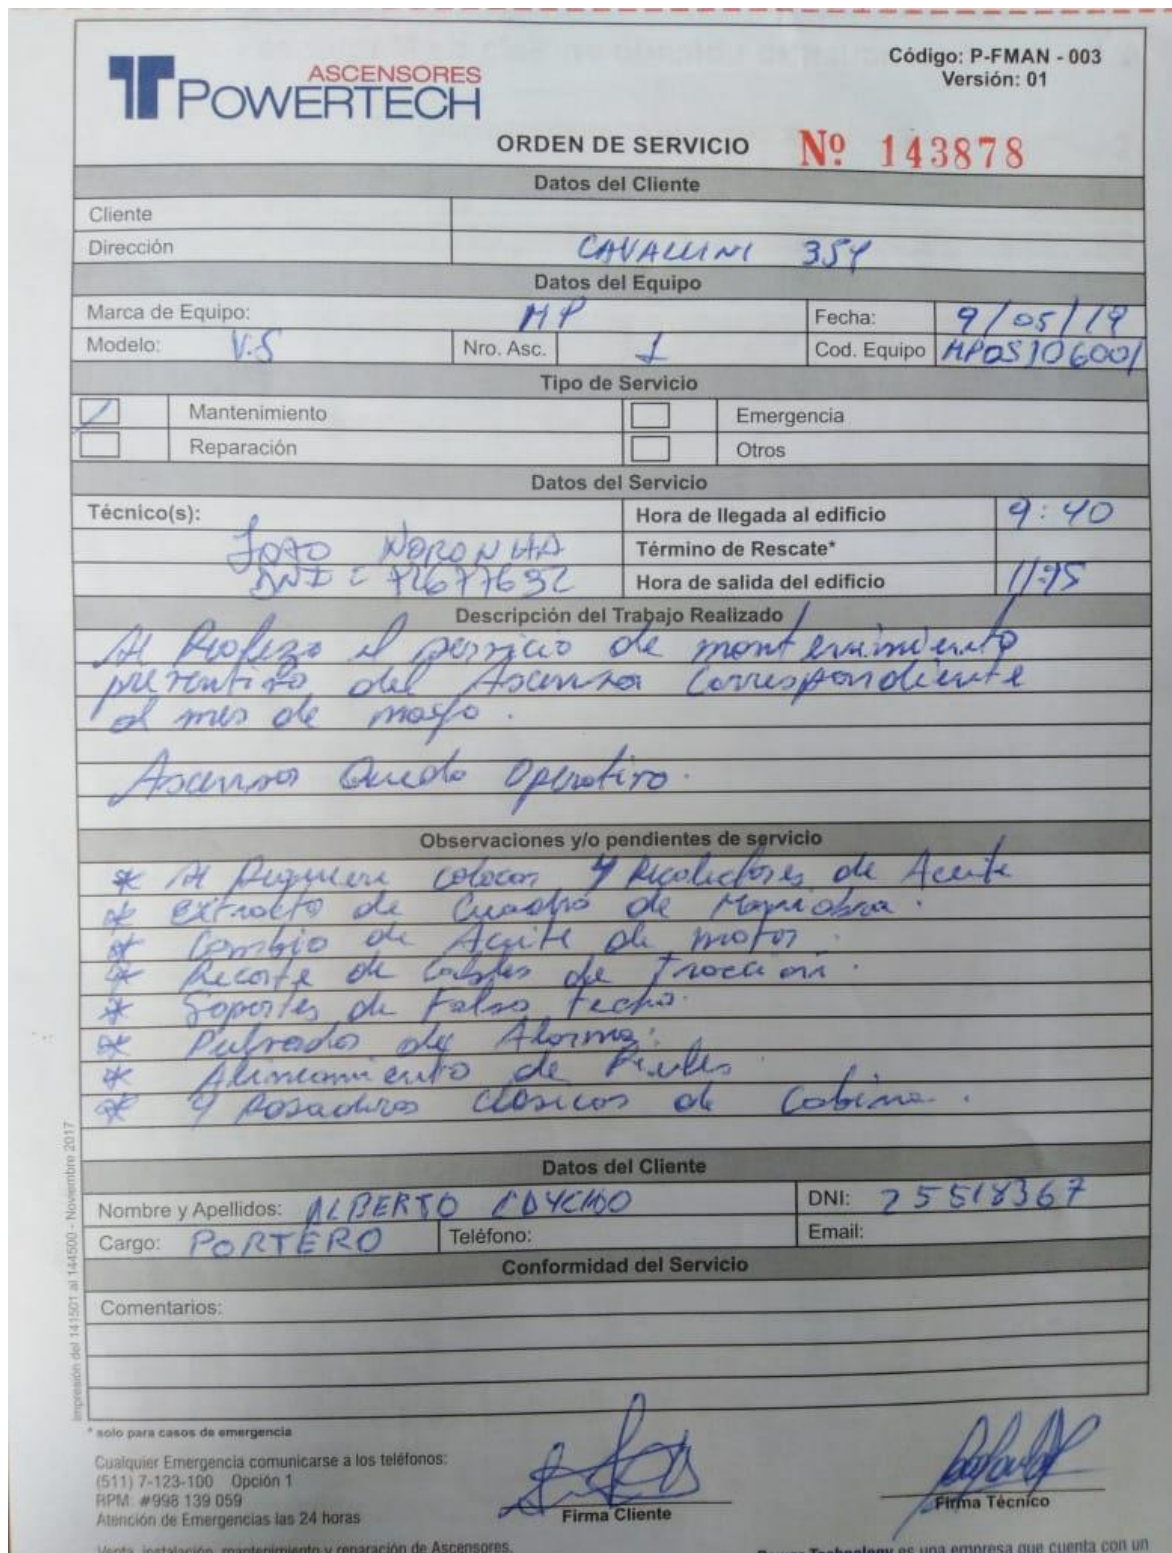 ASCENSORES
POWERTECH
Código: P-FMAN - 003
Versión: 01
ORDEN DE SERVICIO Nº 143878
Datos del Cliente
Cliente
Dirección CAVALLINI 354
Datos del Equipo
Marca de Equipo: MP Fecha: 9/05/19
Modelo: V.S Nro. Asc. 1 Cod. Equipo MPOS106001
Tipo de Servicio
Mantenimiento Emergencia
Reparación Otros
Datos del Servicio
Técnico(s): Hora de llegada al edificio 9:40
JOAO NORONHA Término de Rescate*
DNI: 72677632 Hora de salida del edificio
Descripción del Trabajo Realizado
Se Realizo el servicio de mantenimiento
preventivo del Ascensor Correspondiente
al mes de mayo.
Ascensor Quedo Operativo.
Observaciones y/o pendientes de servicio
* Se Requiere colocar 4 Recolectores de Aceite
* extracto de Cuadro de Maniobra.
* Cambio de Aceite de motor.
* Recorte de Cables de Tracción.
* Soportes de Falso techo.
* Pulsador de Alarma.
* Alineamiento de Rieles
* 4 Rosaderas clasicas de Cabina.
Datos del Cliente
Nombre y Apellidos: ALBERTO DNI: 25518367
Cargo: PORTERO Teléfono: Email:
Conformidad del Servicio
Comentarios:
* solo para casos de emergencia
Cualquier Emergencia comunicarse a los teléfonos:
(511) 7-123-100 Opción 1
RPM: #998 139 059
Atención de Emergencias las 24 horas
Firma Cliente
Firma Técnico
Venta, instalación, mantenimiento y reparación de Ascensores.
Power Technology es una empresa que cuenta con un
Impresión del 141501 al 144500 - Noviembre 2017